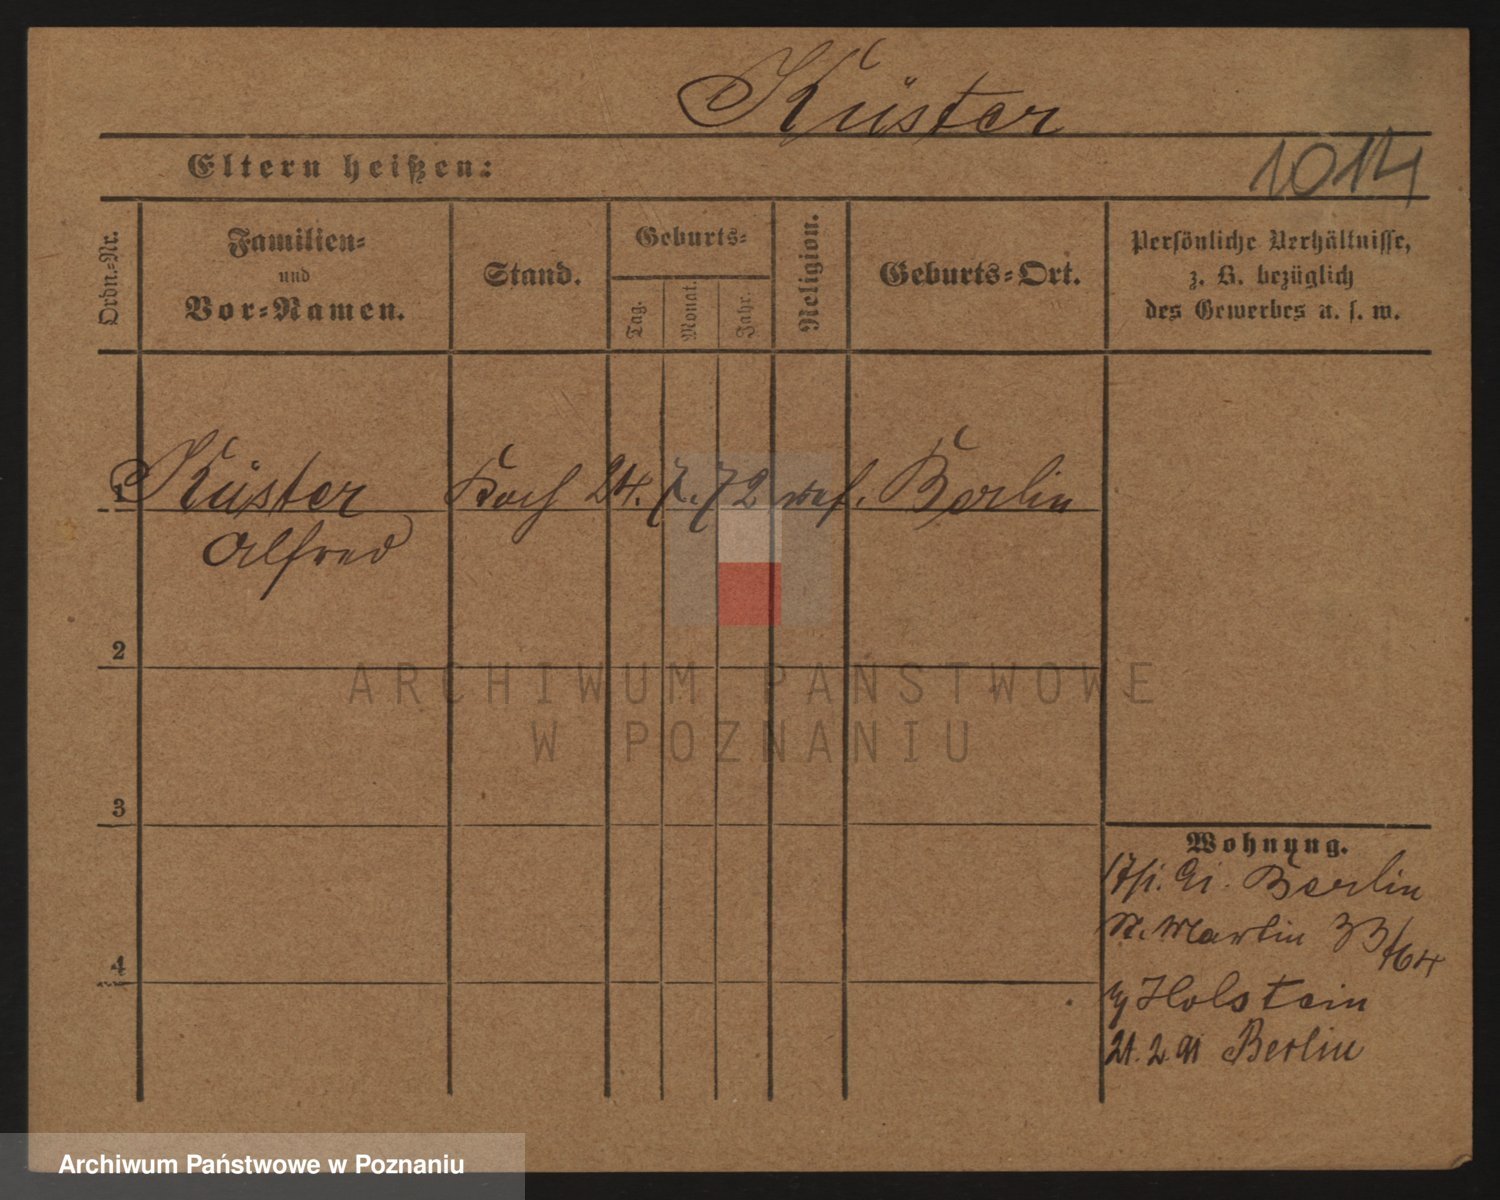 Küster
Eltern heißen:
1014
Ordn.-Nr.
Familien-
und
Vor-Namen.
Stand.
Geburts-
Tag.
Monat.
Jahr.
Religion.
Geburts-Ort.
Persönliche Verhältnisse,
z. B. bezüglich
des Gewerbes u. s. w.
1 Küster Koch 24. 7. 72 Berlin
Alfred
2
ARCHIWUM PAŃSTWOWE
W POZNANIU
3
Wohnung.
Berlin
St. Martin 33/64
Holstein
21. 2. 91 Berlin
4
Archiwum Państwowe w Poznaniu